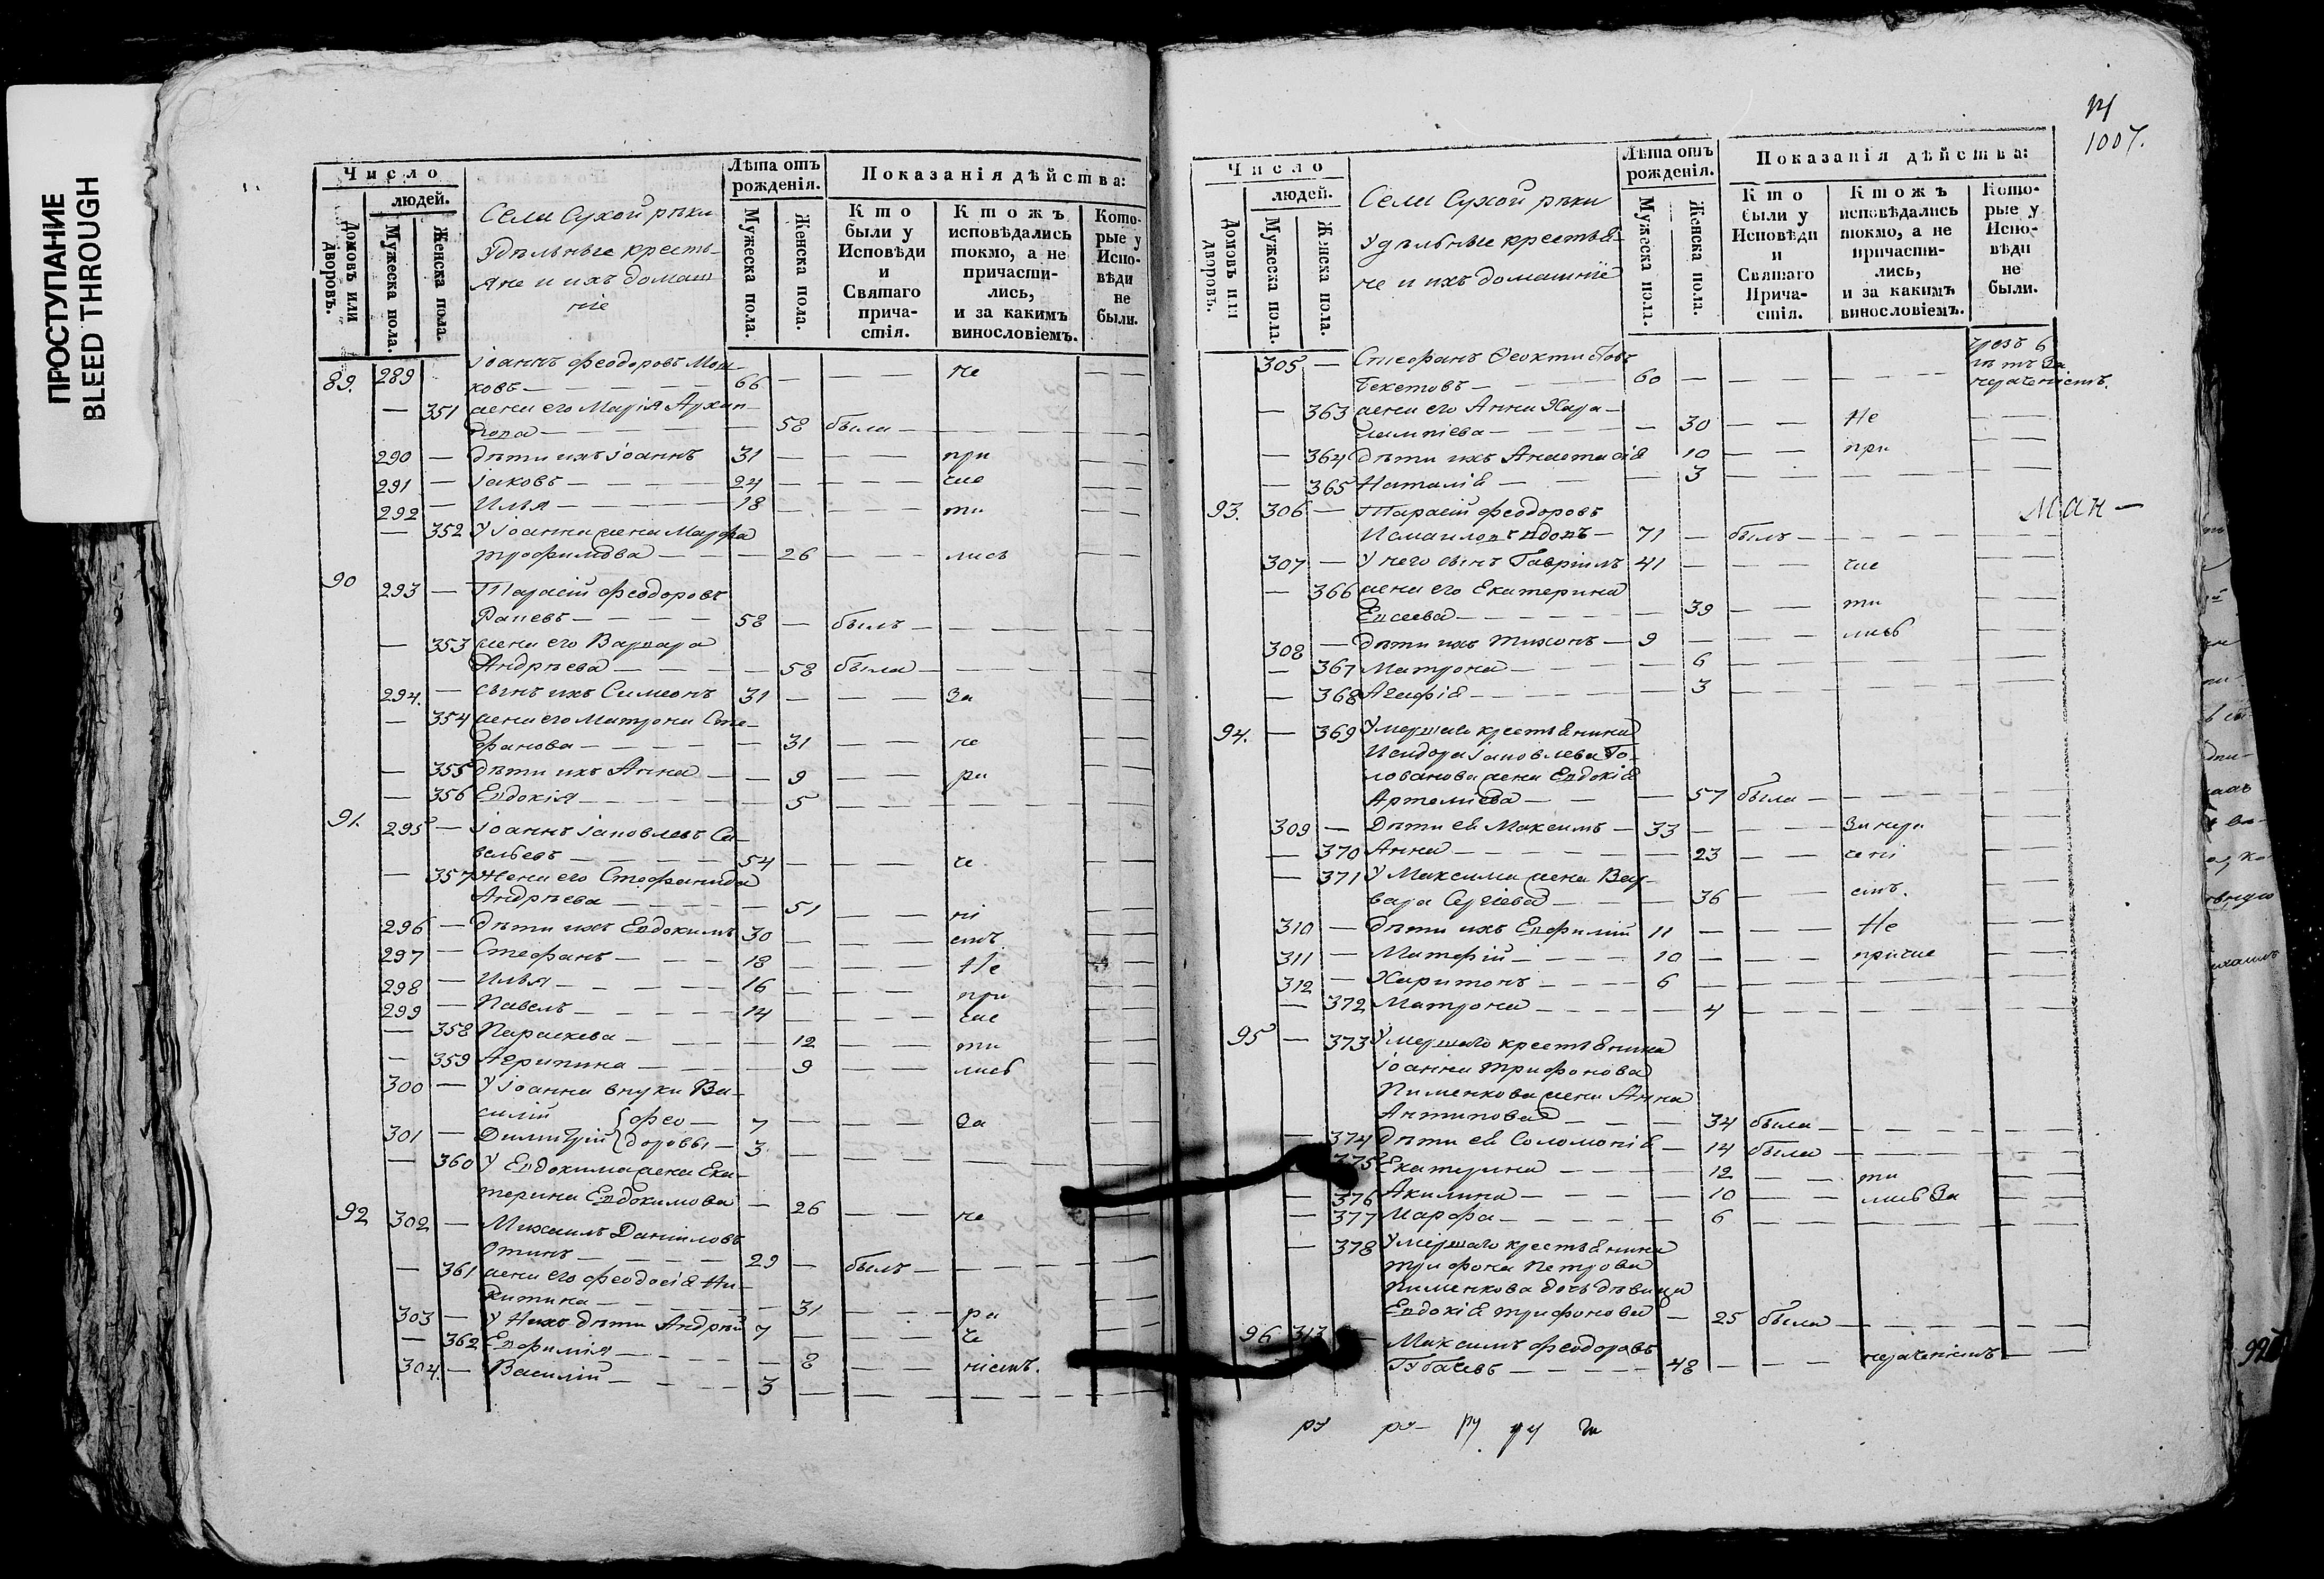 ПРОСТУПАНИЕ
BLEED THROUGH
Число
людей.
Домовъ или дворовъ.
Мужеска пола.
Женска пола.
Села Сухой рѣки
Удѣльные кресть-
яне и ихъ домаш
ніе
Лѣта отъ рожденія.
Мужеска пола.
Женска пола.
Показанія дѣйства:
Кто были у Исповѣди и Святаго причастія.
Ктожъ исповѣдались токмо, а не причастились, и за какимъ винословіемъ.
Которые у Исповѣди не были.
89. 289 Іоаннъ Феодоровъ
ковъ — 66 — — — не — —
— 351 жена его Марія
— 58 была — — —
290 — дѣти ихъ Іоаннъ 31 — — — при — —
291 — Іаковъ — 24 — — — час — —
292 — Илья — 18 — — — ти — —
— 352 У Іоанна жена Марфа
Трофимова — — 26 — — лись — —
90 293 — Тарасій Феодоровъ
58 — былъ — — —
— 353 жена его Варвара
Андрѣева — — 58 была — — —
294. — сынъ ихъ Симеонъ 31 — — — За — —
— 354 жена его Матрона Сте-
фанова — — 31 — — не — —
— 355 дѣти ихъ Анна — — 9 — — ра — —
— 356 Евдокія — — 5 — — — —
91. 295 — Іоаннъ Іаковлевъ Са-
вельевъ — 54 — — — че — —
— 357 Жена его Стефанида
Андрѣева — — 51 — — ні — —
296 — дѣти ихъ Евдокимъ 30 — — — емъ. — —
297 — Стефанъ — 18 — — — Не — —
298 — Илья — 16 — — — при — —
299 — Павелъ — 14 — — — час — —
— 358 Параскева — — 12 — — ти — —
— 359 Агрипина — — 9 — — лись — —
300 — У Іоанна внуки Ва-
силій { Фео — 7 — — — За — —
301 — Димитрій { доровы — 3 — — — —
— 360 У Евдокима жена Ека-
терина Евдокимова — 26 — — не — —
92 302 — Михаилъ Даніиловъ
29 — былъ — — —
— 361 жена его Феодосія Ни-
китина — — 31 — — ра — —
303 — У Нихъ дѣти Андрей 7 — — — че — —
— 362 Евфимія — — 8 — — ніемъ. — —
304. — Василій — 3 — — — —
1007.
Число
людей.
Домовъ или дворовъ.
Мужеска пола.
Женска пола.
Села Сухой рѣки
Удѣльные крестья-
не и ихъ домашніе
Лѣта отъ рожденія.
Мужеска пола.
Женска пола.
Показанія дѣйства:
Кто были у Исповѣди и Святаго Причастія.
Ктожъ исповѣдались токмо, а не причастились, и за какимъ винословіемъ.
Которые у Исповѣди не были.
305 — Стефанъ Феоктистовъ
Бекетовъ — 60 — — — — 6 лѣтъ За нераченіемъ.
— 363 жена его Анна Хара-
лампіева — — 30 — — Не — —
— 364 дѣти ихъ Анастасія 10 — — при — —
— 365 Наталія — — 3 — — — —
93. 306 — Тарасій Феодоровъ
Исмаиловъ вдовъ — 71 — былъ — — —
307 — У него сынъ Гавріилъ 41 — — — час — —
— 366 жена его Екатерина
— 39 — — ти — —
308 — дѣти ихъ Тихонъ — 9 — — — лись — —
— 367 Матрона — — 6 — — — —
— 368 Агафія — — 3 — — — —
94. — 369 Умершаго крестьянина
Исидора Іаковлева Го-
лованова жена Евдокія
Артеміева — — 57 была — — —
309 — Дѣти ея Максимъ — 33 — — — За нера — —
— 370 Анна — — 23 — — чені — —
— 371 У Максима жена Вар-
вара Сергіева — — 36 — емъ. — —
310 — Дѣти ихъ Евфимій 11 — — — Не — —
311 — Матфій — 10 — — — причас — —
312 — Харитонъ — 6 — — — —
— 372 Матрона — — 4 — — — —
95 — 373 Умершаго крестьянина
Іоанна Трифонова
Пименкова жена Анна
Антипова — — 34 была — — —
— 374 Дѣти ея Соломонія — 14 была — — —
375 Екатерина — — 12 — — ти — —
— 376 Акилина — — 10 — — лись За — —
— 377 Марфа — — 6 — — — —
— 378 Умершаго крестьянина
Трифона Петрова
Пименкова дочь дѣвица
Евдокія Трифонова — 25 была — — —
96 313 — Максимъ Феодоровъ
Губачевъ — 48 — — — нераченіемъ — —